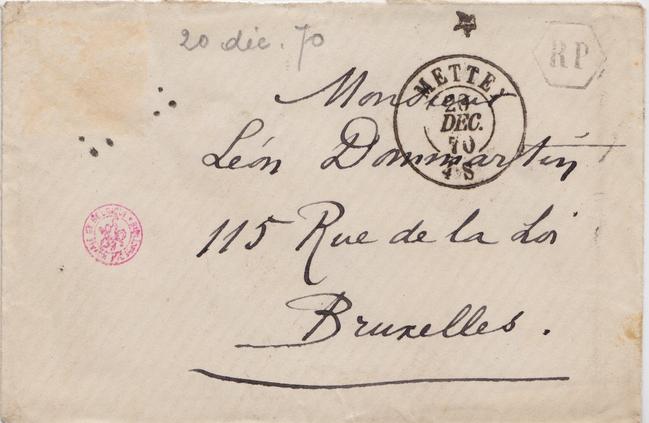 20 déc. 70
RP
METTET
20
DEC.
70
4 S
Monsieur
Léon Dommartin
115 Rue de la Loi
Bruxelles.